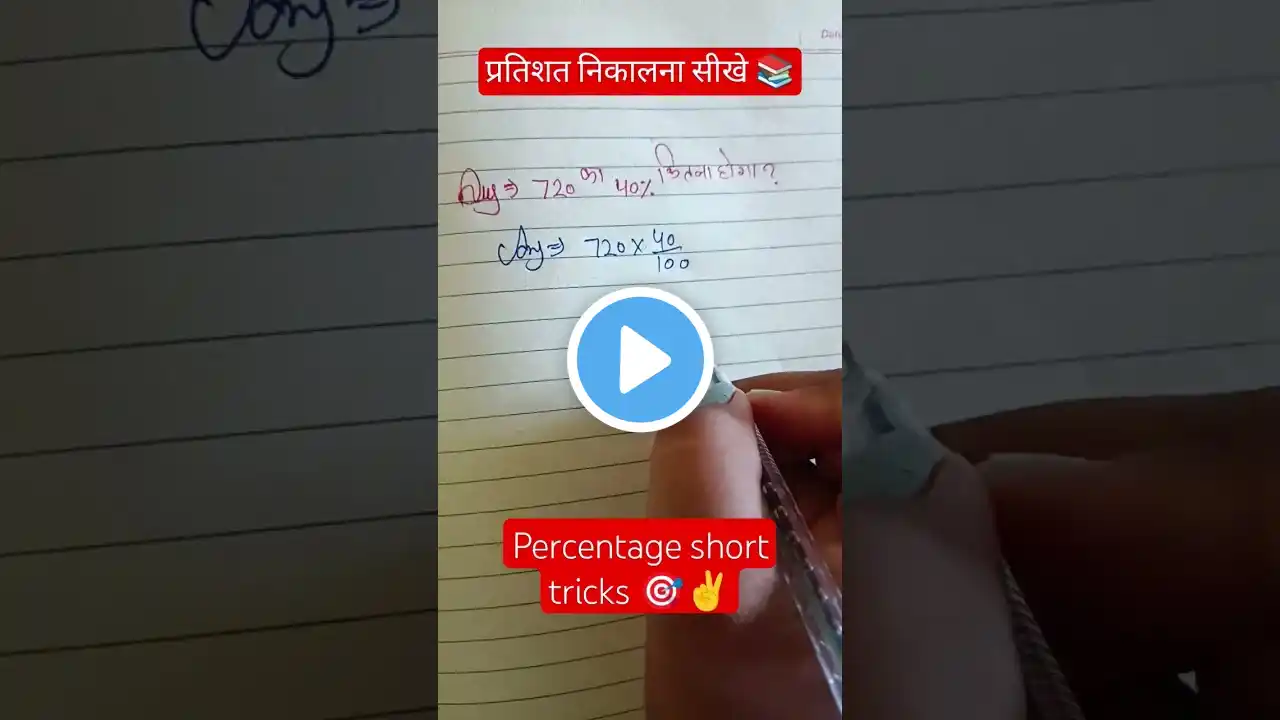 प्रतिशत निकालना सीखे 📚
Ques⇒ 720 का 40% कितना होगा?
Ans⇒ 720 × 40/100
Percentage short
tricks 🎯✌️